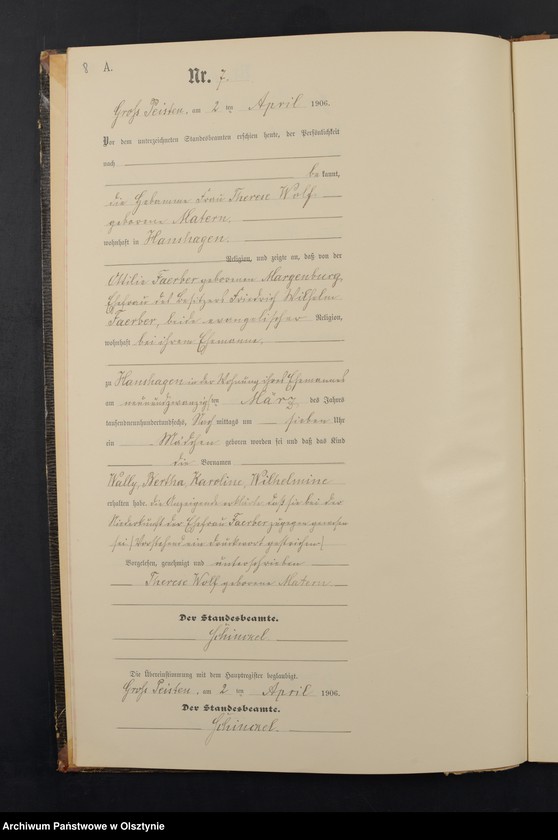 8 A.
Nr. 7.
Gross Peisten, am 2 ten April 1906.
Vor dem unterzeichneten Standesbeamten erschien heute, der Persönlichkeit
nach
be kannt,
die Hebamme Frau Therese Wolf
geborene Matern.
wohnhaft in Hanshagen.
Religion, und zeigte an, daß von der
Ottilie Faerber geborenen Margenburg,
Ehefrau des Besitzers Friedrich Wilhelm
Faerber, beide evangelischer Religion,
wohnhaft bei ihrem Ehemanne.
zu Hanshagen in der Wohnung ihres Ehemannes
am neunundzwanzigsten März des Jahres
tausendneunhundertundsechs, Nachmittags um sieben Uhr
ein Mädchen geboren worden sei und daß das Kind
die Vornamen
Wally, Bertha, Karoline, Wilhelmine
erhalten habe. die Anzeigende erklärte daß sie bei der
Niederkunft der Ehefrau Faerber zugegen gewesen
sei (Vorstehend ein Druckwort gestrichen)
Vorgelesen, genehmigt und unterschrieben
Therese Wolf geborene Matern
Der Standesbeamte.
Die Übereinstimmung mit dem Hauptregister beglaubigt.
Gross Peisten, am 2 ten April 1906.
Der Standesbeamte.
Archiwum Państwowe w Olsztynie